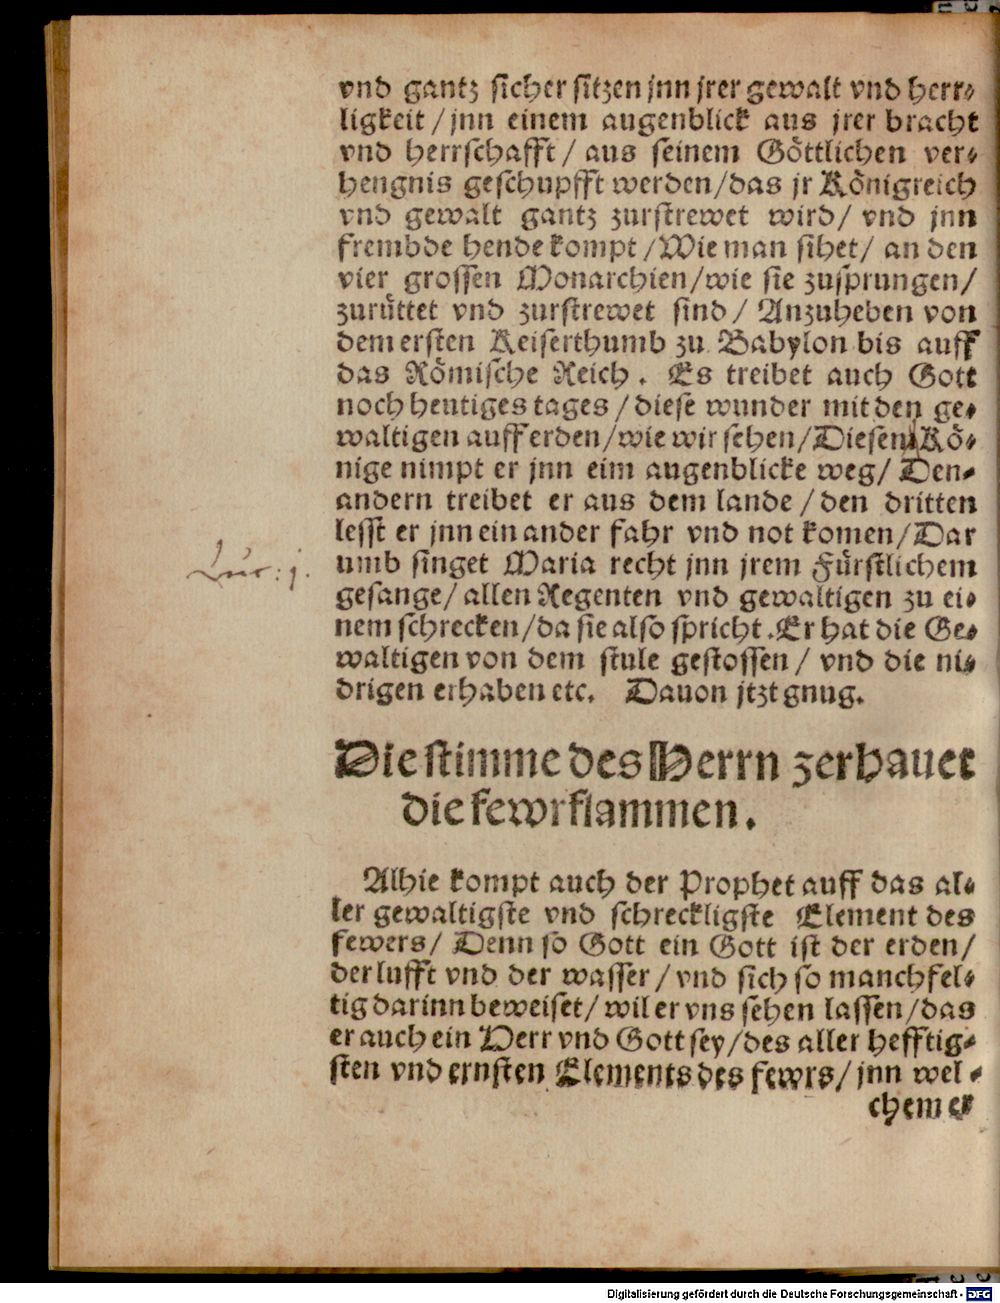 vnd gantz sicher sitzen jnn jrer gewalt vnd herr⸗
ligkeit / jnn einem augenblick aus jrer bracht
vnd herrschafft / aus seinem Göttlichen ver⸗
hengnis geschupfft werden/das jr Königreich
vnd gewalt gantz zurstrewet wird/ vnd jnn
frembde hende kompt /Wie man sihet/ an den
vier grossen Monarchien/wie sie zusprungen/
zurüttet vnd zurstrewet sind / Anzuheben von
dem ersten Keiserthumb zu Babylon bis auff
das Römische Reich . Es treibet auch Gott
noch heutiges tages / diese wunder mit den ge⸗
waltigen auff erden/wie wir sehen/Diesen Kö⸗
nige nimpt er jnn eim augenblicke weg/ Den⸗
andern treibet er aus dem lande / den dritten
lesst er jnn ein ander fahr vnd not komen/Dar
umb singet Maria recht jnn jrem Fürstlichem
gesange/ allen Regenten vnd gewaltigen zu ei⸗
nem schrecken/da sie also spricht .Er hat die Ge⸗
waltigen von dem stule gestossen / vnd die ni⸗
drigen erhaben etc. Dauon jtzt gnug.
Luc: j.
Die stimme des Herrn zerhauet
die fewrflammen.
Alhie kompt auch der Prophet auff das al⸗
ler gewaltigste vnd schreckligste Element des
fewers/ Denn so Gott ein Gott ist der erden/
der lufft vnd der wasser / vnd sich so manchfel⸗
tig darinn beweiset/ wil er vns sehen lassen/das
er auch ein Herr vnd Gott sey/des aller hefftig⸗
sten vnd ernsten Elements des fewrs/ jnn wel⸗
chem er
Digitalisierung gefördert durch die Deutsche Forschungsgemeinschaft - DFG